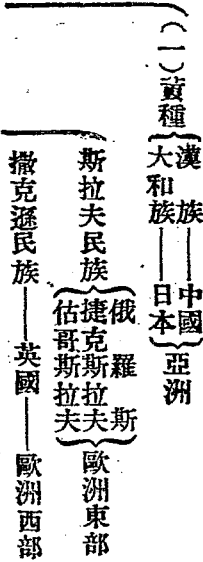 （一）黃種
漢族——中國
大和族——日本
亞洲
斯拉夫民族
俄羅斯
捷克斯拉夫
估哥斯拉夫
歐洲東部
撒克遜民族——英國——歐洲西部